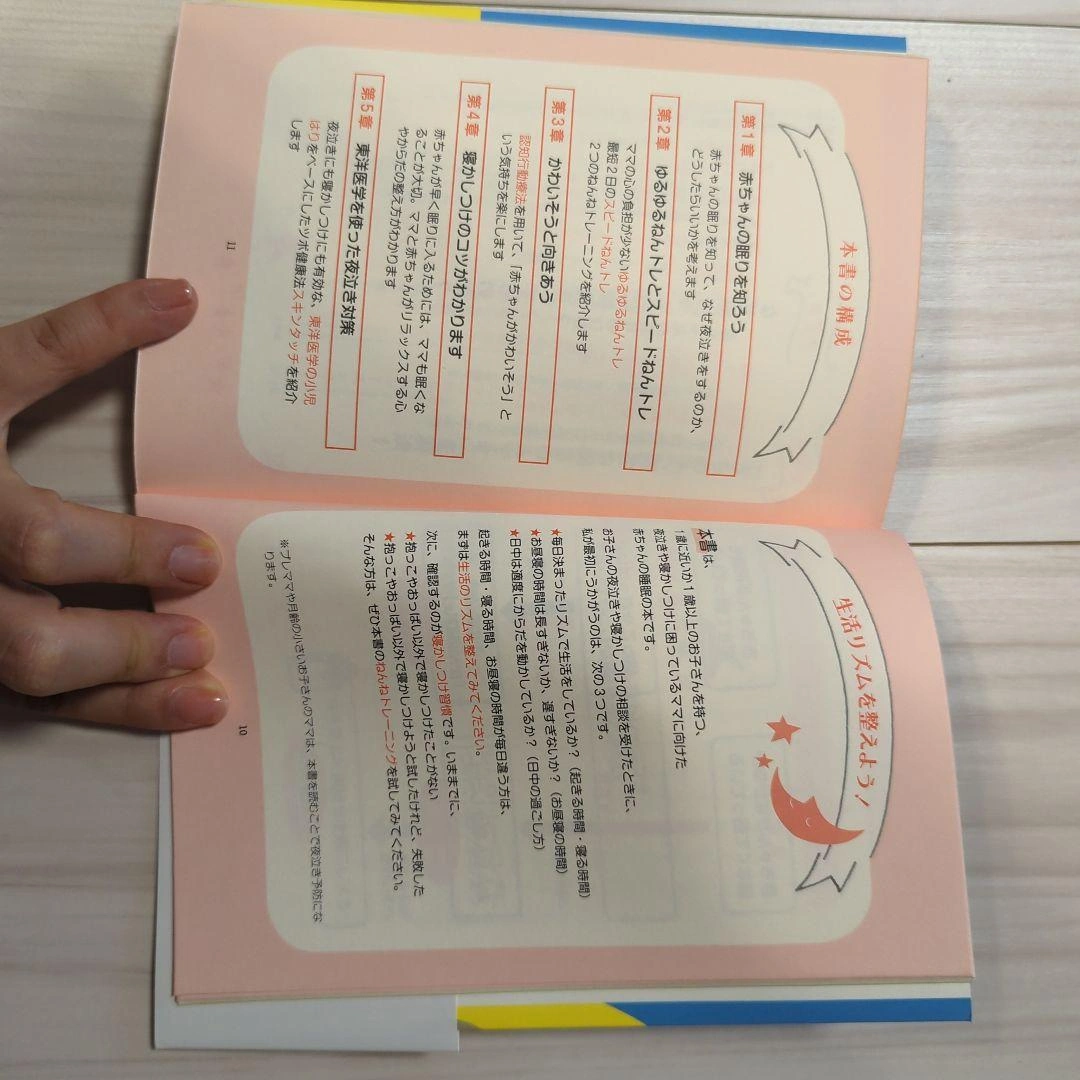 生活リズムを整えよう!
本書は、
1歳に近いか1歳以上のお子さんを持つ、
夜泣きや寝かしつけに困っているママに向けた
赤ちゃんの睡眠の本です。
お子さんの夜泣きや寝かしつけの相談を受けたときに、
私が最初にうかがうのは、次の3つです。
★毎日決まったリズムで生活をしているか?(起きる時間・寝る時間)
★お昼寝の時間は長すぎないか、遅すぎないか?(お昼寝の時間)
★日中は適度にからだを動かしているか?(日中の過ごし方)
起きる時間・寝る時間、お昼寝の時間が毎日違う方は、
まずは生活のリズムを整えてみてください。
次に、確認するのが寝かしつけ習慣です。いままでに、
★抱っこやおっぱい以外で寝かしつけたことがない
★抱っこやおっぱい以外で寝かしつけようと試したけれど、失敗した
そんな方は、ぜひ本書のねんねトレーニングを試してみてください。
※プレママや月齢の小さいお子さんのママは、本書を読むことで夜泣き予防にな
ります。
10
本書の構成
第1章 赤ちゃんの眠りを知ろう
赤ちゃんの眠りを知って、なぜ夜泣きをするのか、
どうしたらいいかを考えます
第2章 ゆるゆるねんトレとスピードねんトレ
ママの心の負担が少ないゆるゆるねんトレ
最短2日のスピードねんトレ
2つのねんねトレーニングを紹介します
第3章 かわいそうと向きあう
認知行動療法を用いて、「赤ちゃんがかわいそう」と
いう気持ちを楽にします
第4章 寝かしつけのコツがわかります
赤ちゃんが早く眠りに入るためには、ママも眠くな
ることが大切。ママと赤ちゃんがリラックスする心
やからだの整え方がわかります
第5章 東洋医学を使った夜泣き対策
夜泣きにも寝かしつけにも有効な、東洋医学の小児
はりをベースにしたツボ健康法スキンタッチを紹介
します
11